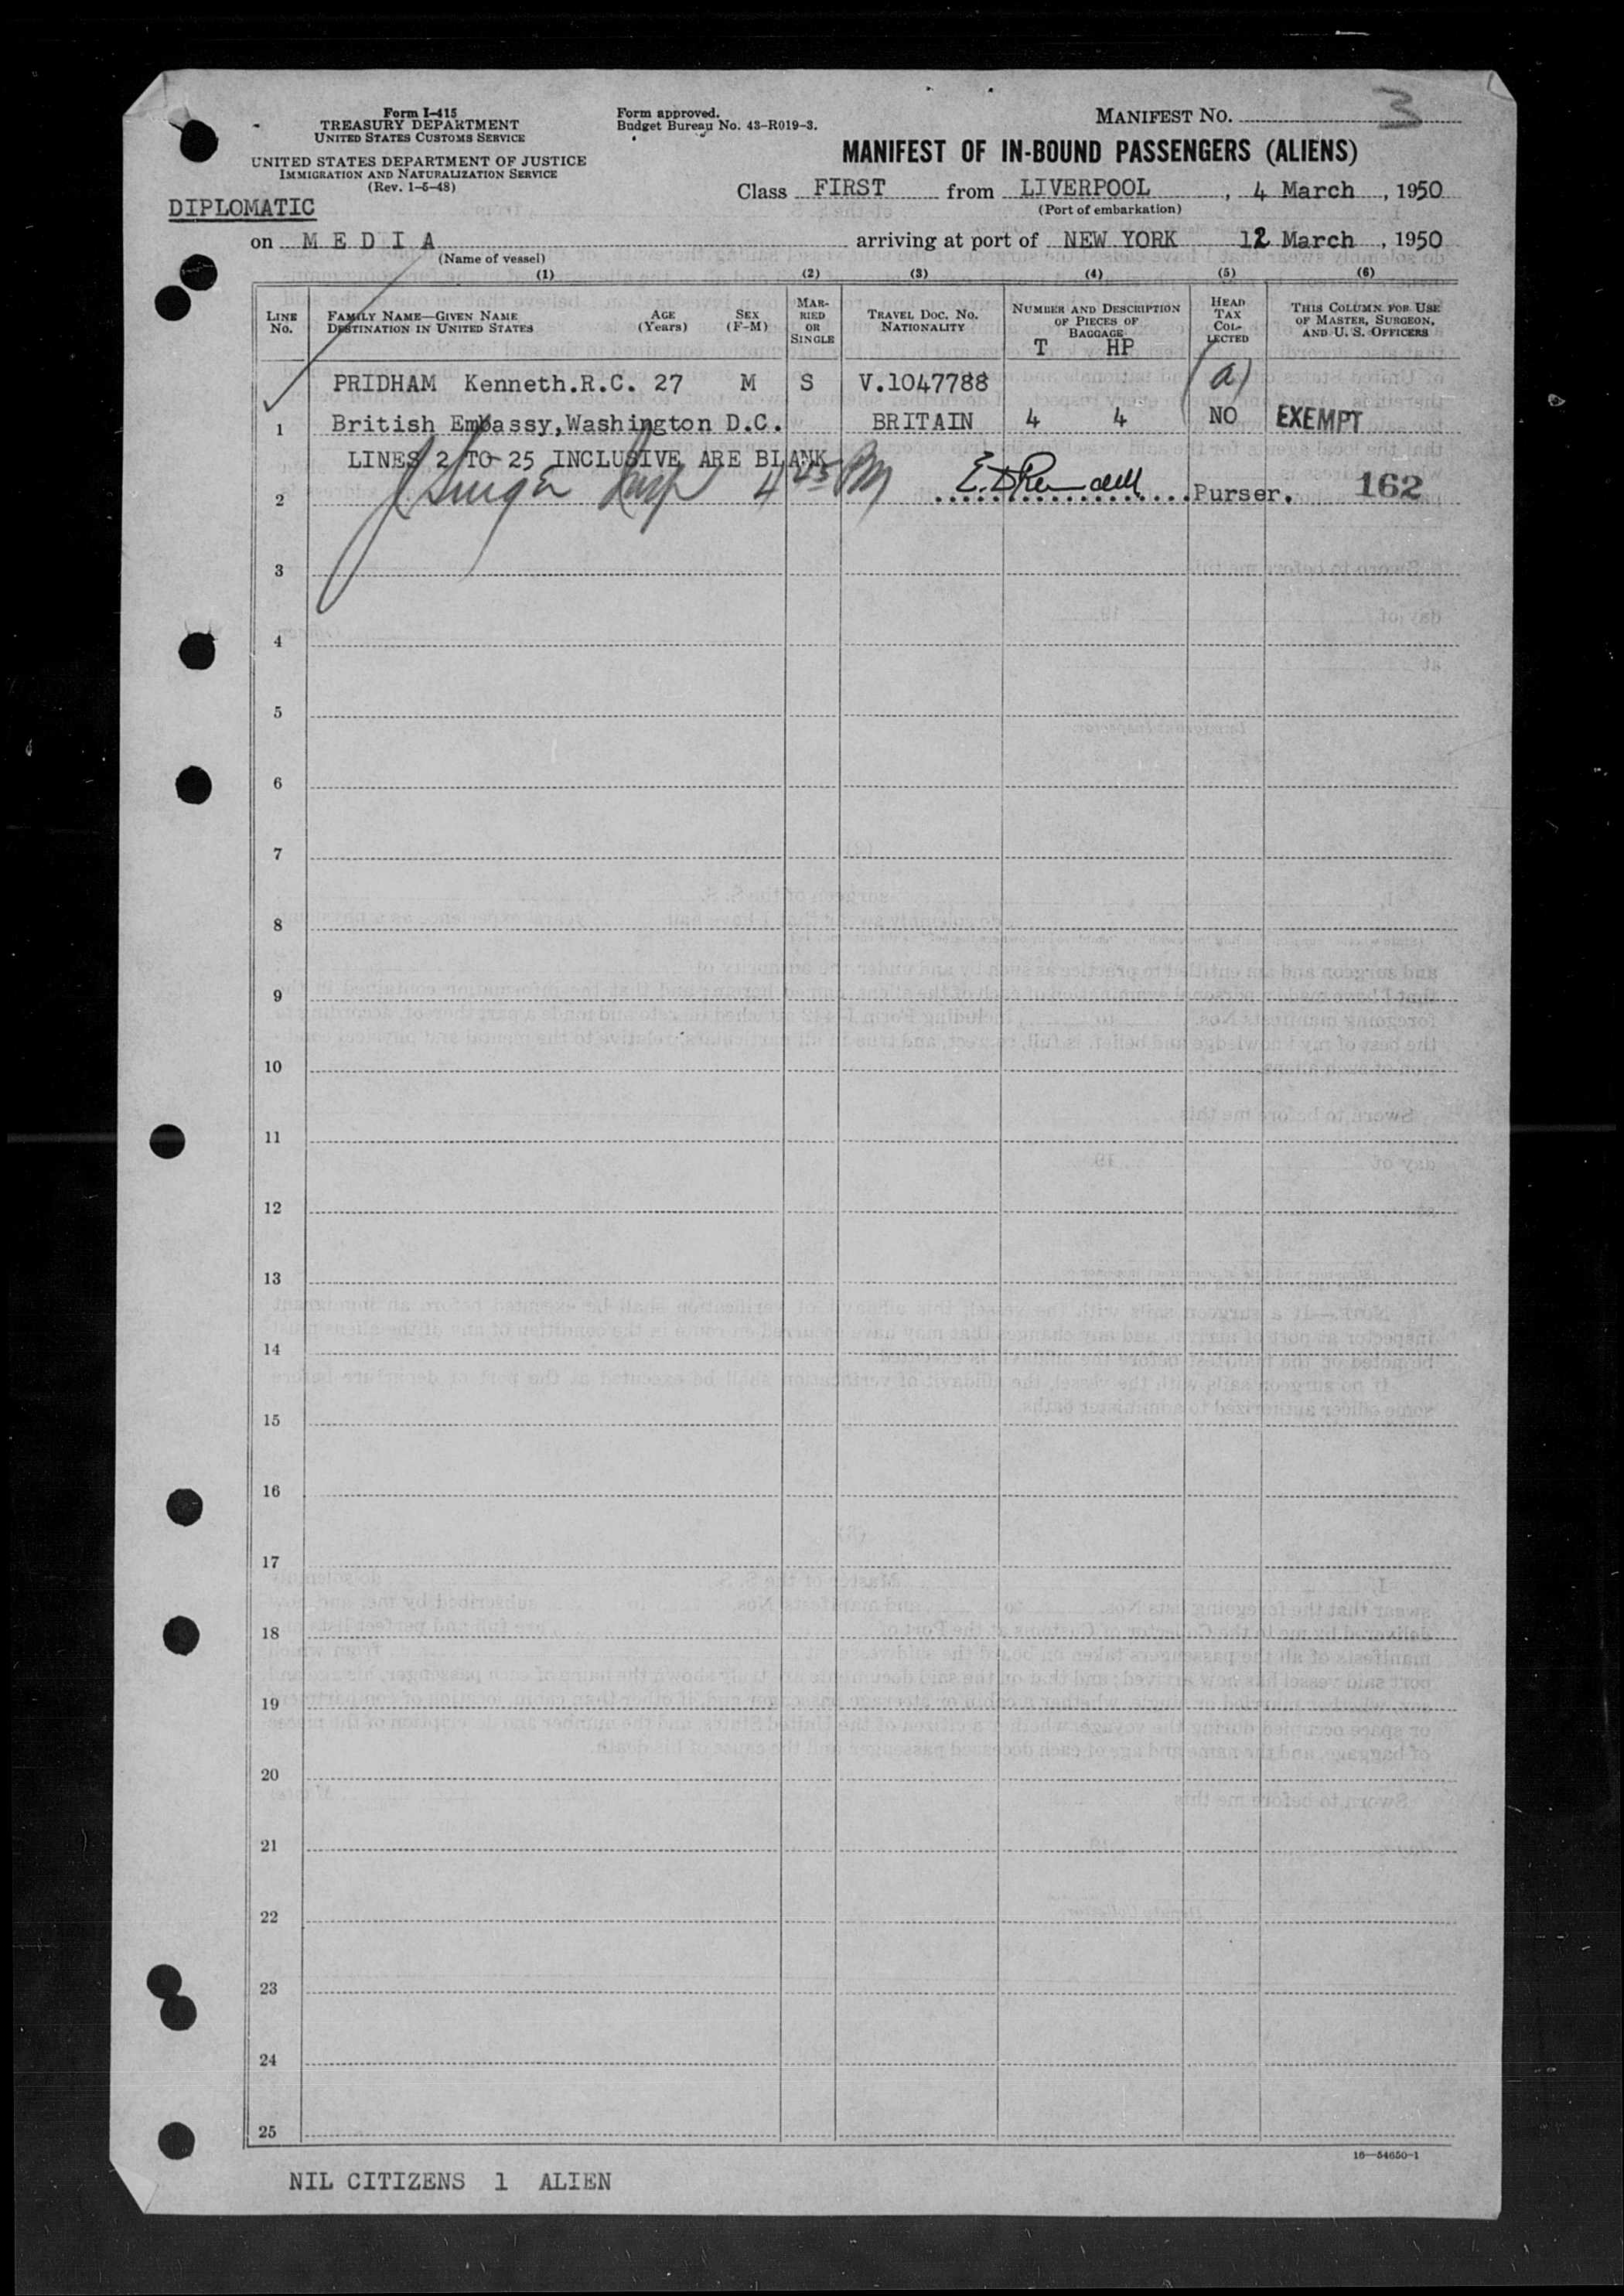 Form I-415
TREASURY DEPARTMENT
UNITED STATES CUSTOMS SERVICE
UNITED STATES DEPARTMENT OF JUSTICE
IMMIGRATION AND NATURALIZATION SERVICE
(Rev. 1-5-48)
Form approved.
Budget Bureau No. 43-R019-3.
MANIFEST NO. 3
MANIFEST OF IN-BOUND PASSENGERS (ALIENS)
Class FIRST from LIVERPOOL, 4 March, 1950
(Port of embarkation)
DIPLOMATIC
on M E D I A arriving at port of NEW YORK 12 March, 1950
(Name of vessel)
(1) (2) (3) (4) (5) (6)
LINE No.
FAMILY NAME—GIVEN NAME
DESTINATION IN UNITED STATES
AGE (Years)
SEX (F-M)
MAR-
RIED
OR
SINGLE
TRAVEL DOC. NO.
NATIONALITY
NUMBER AND DESCRIPTION
OF PIECES OF
BAGGAGE
T HP
HEAD
TAX
COL-
LECTED
THIS COLUMN FOR USE
OF MASTER, SURGEON,
AND U. S. OFFICERS
PRIDHAM Kenneth.R.C. 27 M S V.1047788 (a)
1 British Embassy,Washington D.C. BRITAIN 4 4 NO EXEMPT
LINES 2 TO 25 INCLUSIVE ARE BLANK
2 4 45 PM Purser. 162
3
4
5
6
7
8
9
10
11
12
13
14
15
16
17
18
19
20
21
22
23
24
25
16—54650-1
NIL CITIZENS 1 ALIEN